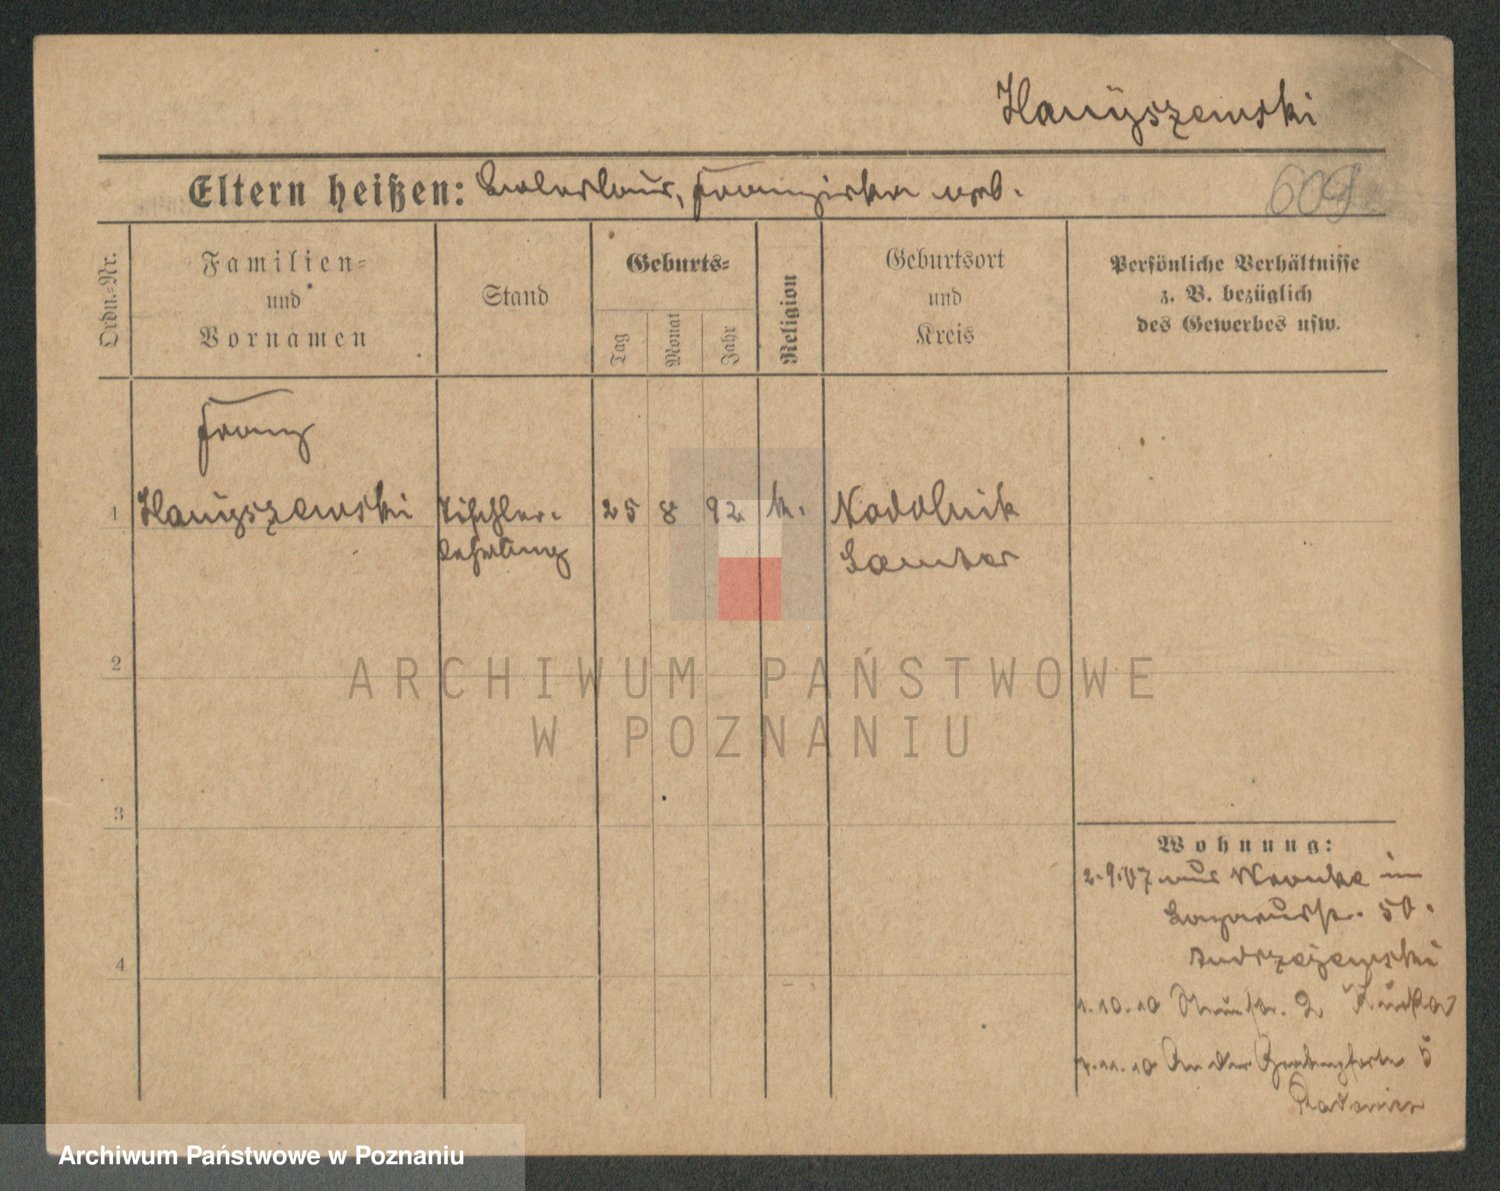 Hanyszewski
Eltern heißen: Ladislaus, Franziska geb.
609
Ordn.-Nr.
Familien-
und
Vornamen
Stand
Geburts-
Tag
Monat
Jahr
Religion
Geburtsort
und
Kreis
Persönliche Verhältnisse
z. B. bezüglich
des Gewerbes usw.
Franz
1 Hanyszewski Tischler- 25 8 92 k. Nadolnik
Lehrling Samter
2
3
4
Wohnung:
2.9.07 aus Wronke in
Lazarusstr. 50.
Andrzejewski
1.10.10 2
7.11.10 An der Gartenpforte 5
ARCHIWUM PAŃSTWOWE
W POZNANIU
Archiwum Państwowe w Poznaniu